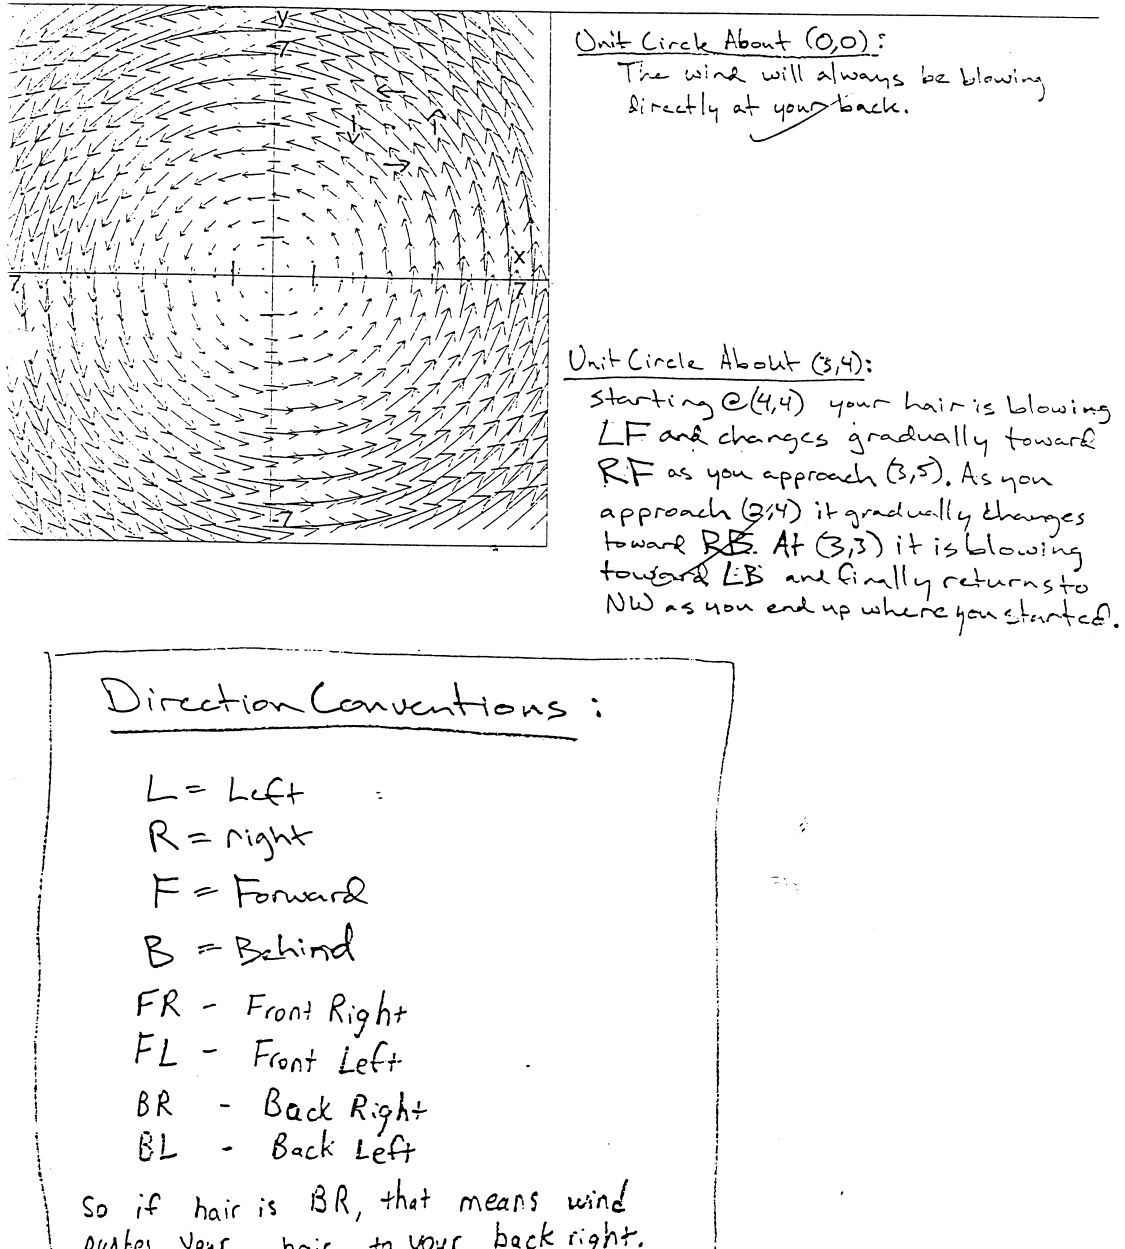 y
7
x
7
7
-7
Unit Circle About (0,0):
The wind will always be blowing
directly at your back.
Unit Circle About (3,4):
Starting @ (4,4) your hair is blowing
LF and changes gradually toward
RF as you approach (3,5). As you
approach (2,4) it gradually changes
toward RB. At (3,3) it is blowing
toward LB and finally returns to
NW as you end up where you started.
Direction Conventions:
L = Left
R = right
F = Forward
B = Behind
FR - Front Right
FL - Front Left
BR - Back Right
BL - Back Left
So if hair is BR, that means wind
pushes your hair to your back right.